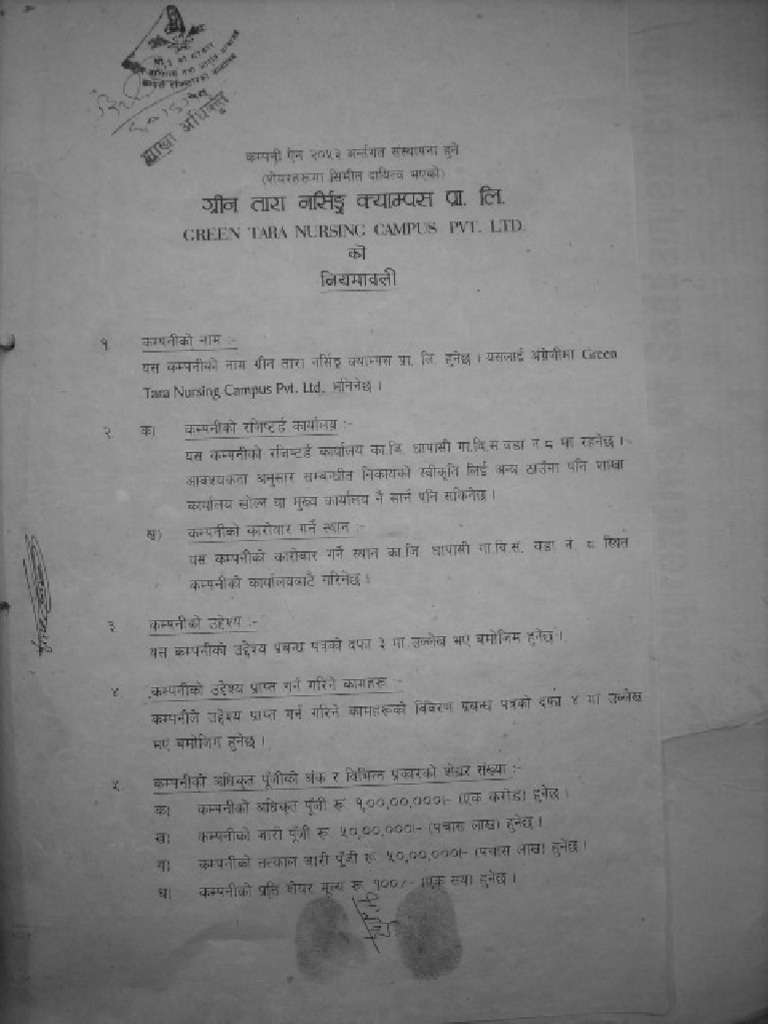 शाखा अधिकृत
कम्पनी ऐन २०५३ अर्न्तगत संस्थापना हुने
(शेयरहरुमा सिमीत दायित्व भएको)
ग्रीन तारा नर्सिङ्ग क्याम्पस प्रा. लि.
GREEN TARA NURSING CAMPUS PVT. LTD.
को
नियमावली
१. कम्पनीको नाम :-
यस कम्पनीको नाम ग्रीन तारा नर्सिङ्ग क्याम्पस प्रा. लि. हुनेछ । यसलाई अंग्रेजीमा Green
Tara Nursing Campus Pvt. Ltd. भनिनेछ ।
२. क) कम्पनीको रजिष्टर्ड कार्यालय :-
यस कम्पनीको रजिष्टर्ड कार्यालय का.जि. धापासी गा.वि.स वडा नं ८ मा रहनेछ ।
आवश्यकता अनुसार सम्बन्धीत निकायको स्वीकृति लिई अन्य ठाउँमा पनि शाखा
कार्यालय खोल्न वा मुख्य कार्यालय नै सार्न पनि सकिनेछ ।
ख) कम्पनीको कारोवार गर्ने स्थान :-
यस कम्पनीको कारोवार गर्ने स्थान का.जि. धापासी गा.वि.स. वडा नं. ८ स्थित
कम्पनीको कार्यालयबाटै गरिनेछ ।
३. कम्पनीको उद्देश्य :-
यस कम्पनीको उद्देश्य प्रबन्ध पत्रको दफा ३ मा उल्लेख भए बमोजिम हुनेछ ।
४. कम्पनीको उद्देश्य प्राप्त गर्न गरिने कामहरू :-
कम्पनीले उद्देश्य प्राप्त गर्न गरिने कामहरूको विवरण प्रबन्ध पत्रको दफा ४ मा उल्लेख
भए बमोजिम हुनेछ ।
५. कम्पनीको अधिकृत पूँजीको अंक र विभिन्न प्रकारको शेयर संख्या :-
क) कम्पनीको अधिकृत पूँजी रू १,००,००,०००।- (एक करोड) हुनेछ ।
ख) कम्पनीको जारी पूँजी रू ५०,००,०००।- (पचास लाख) हुनेछ ।
ग) कम्पनीको तत्काल जारी पूँजी रू ५०,००,०००।- (पचास लाख) हुनेछ ।
घ) कम्पनीको प्रति शेयर मूल्य रू १००/- (एक सय) हुनेछ ।